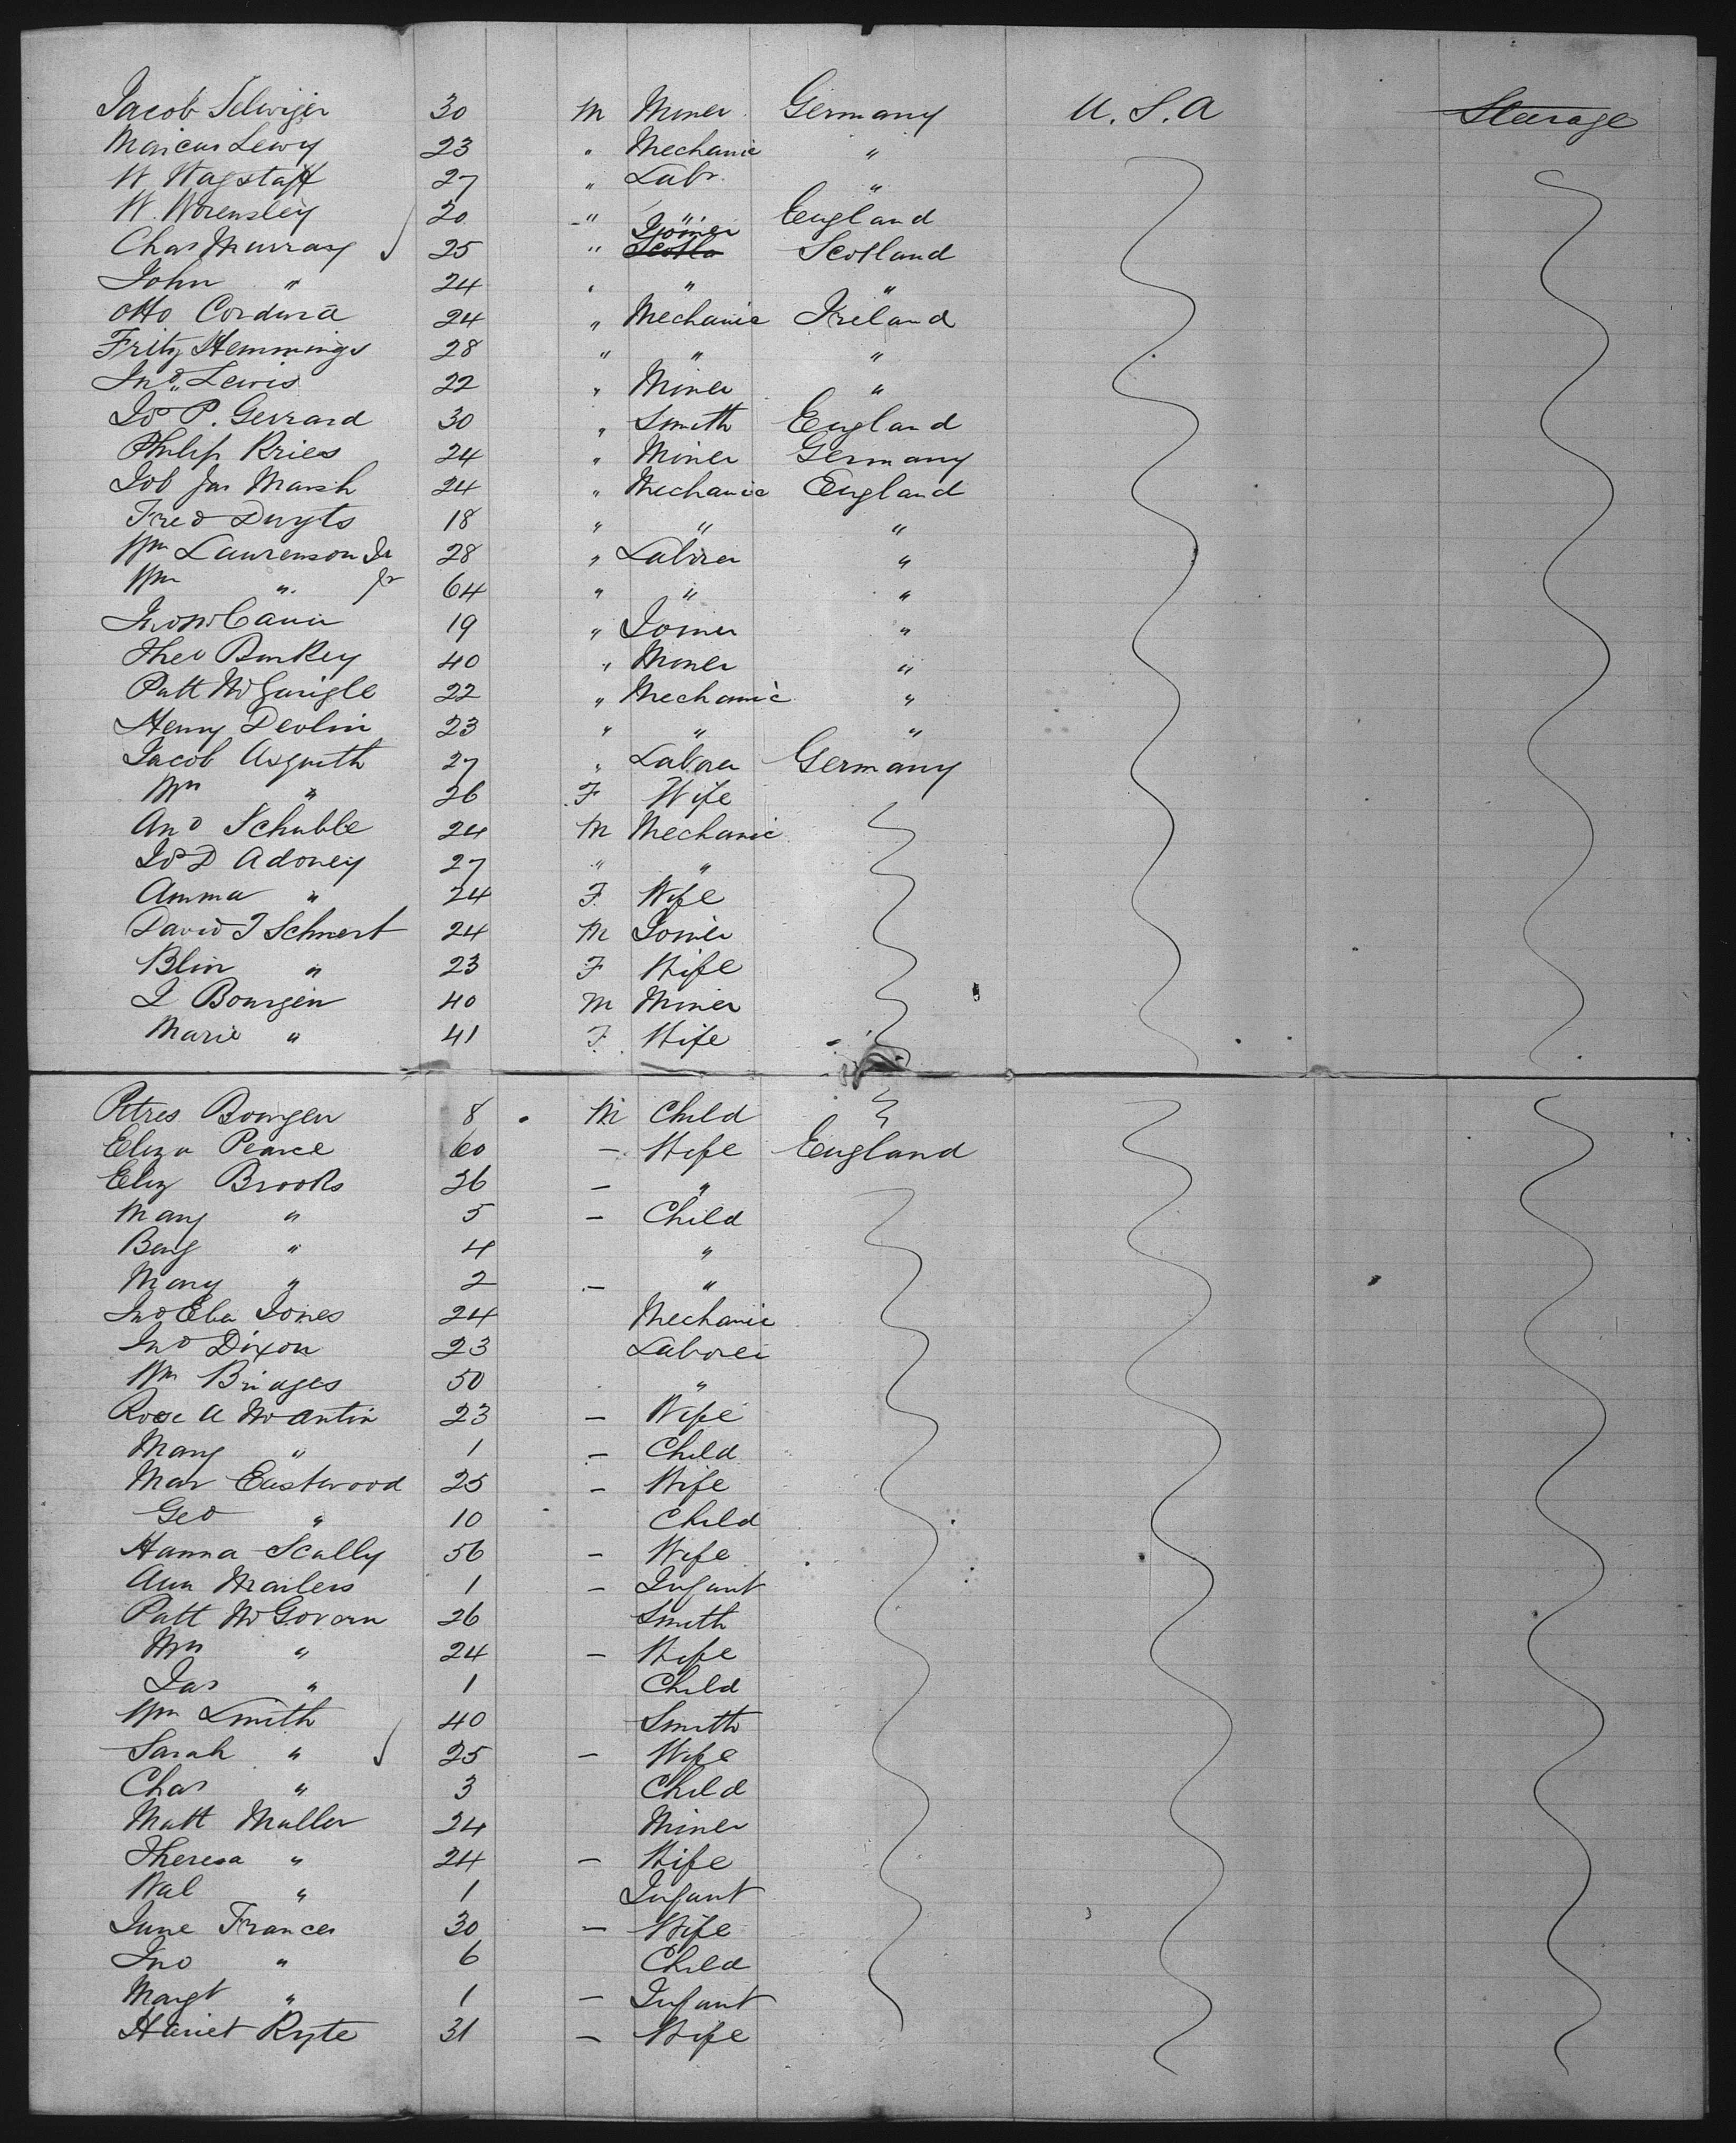 Jacob Selwijer 30 M Miner Germany U.S.A Steerage
Marcus Lewy 23 " Mechanic "
W Wagstaff 27 " Labr "
W. Worensley 20 " " England
Chas Murray 25 " Joiner Scotla Scotland
John " 24 " " "
Otto Cordura 24 " Mechanic Ireland
Fritz Hemmings 28 " " "
Jno. Lewis 22 " Miner "
Jos P. Gerrard 30 " Smith England
Philip Kries 24 " Miner Germany
Job Jas Marsh 24 " Mechanic England
Fred Duyts 18 " " "
Wm Laurenson Sr 28 " Laborer "
Wm " Jr 64 " " "
Jno McCann 19 " Joiner "
Theo Bunkey 40 " Miner "
Patt McGarigle 22 " Mechanic "
Henry Devlin 23 " " "
Jacob Asquith 27 " Laborer Germany
Mrs " 26 F Wife
And Schubble 24 M Mechanic
Jos D Adoney 27 " "
Amma " 24 F. Wife
David J Schmert 24 M Joiner
Blin " 23 F Wife
J Bourgen 40 M Miner
Marie " 41 F. Wife
Petres Bourgen 8 M Child
Eliza Pearce 60 — Wife England
Eliz Brooks 36 — "
Mary " 5 — Child
Benj " 4 "
Mary " 2 — "
Jno Eba Jones 24 Mechanic
Jno Dixon 23 Laborer
Wm Bridges 50 "
Rose A McAntin 23 — Wife
Mary " 1 — Child
Mar Eastwood 25 — Wife
Geo " 10 Child
Hanna Scally 56 — Wife
Ann Mailers 1 — Infant
Patt McGovern 26 Smith
Mrs " 24 — Wife
Jas " 1 Child
Wm Smith 40 Smith
Sarah " 25 — Wife
Chas " 3 Child
Matt Muller 24 Miner
Theresa " 24 — Wife
Wal " 1 Infant
June Frances 30 — Wife
Jno " 6 Child
Margt " 1 — Infant
Hariet Ryte 31 — Wife